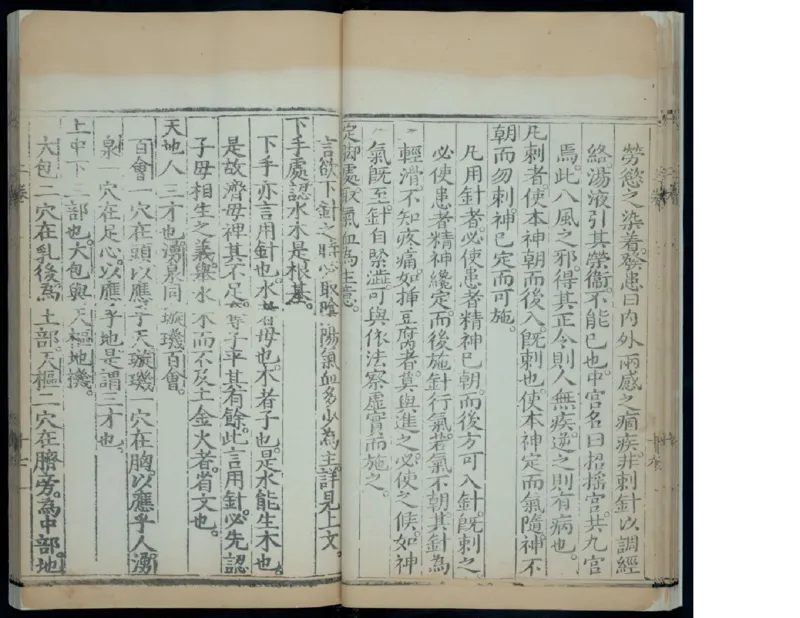 勞慾之染着。發患曰内外兩感之痼疾。非刺針以調經
絡湯液引其榮衛。不能已也。中宮名曰招搖宮。共九宮
焉。此八風之邪。得其正令則人無疾。逆之則有病也。
凡刺者。使本神朝而後入。既刺也。使本神定而氣隨。神不
朝而勿刺。神已定而可施。
凡用針者。必使患者精神已朝。而後方可入針。既刺之
必使患者精神纔定。而後施針行氣。若氣不朝。其針為
輕滑。不知疼痛。如挿豆腐者。莫與進之。必使之候。如神
氣既至。針自緊澁。可與依法察虛實而施之。
定脚處取氣血為主意。
言欲下針之時。必取陰陽氣血多少為主。詳見上文。
下手處認水木是根基。
下手亦言用針也。水者母也。木者子也。是水能生木也。
是故濟母裨其不足。奪子平其有餘。此言用針。必先認
子母相生之義。舉水木而不及土金火者。省文也。
天地人三才也。湧泉同璇璣百會。
百會一穴在頭。以應乎天。璇璣一穴在胸。以應乎人。湧
泉一穴在足心。以應乎地。是謂三才也。
上中下三部也。大包與天樞地機。
大包二穴在乳後。為上部。天樞二穴在臍旁。為中部。地